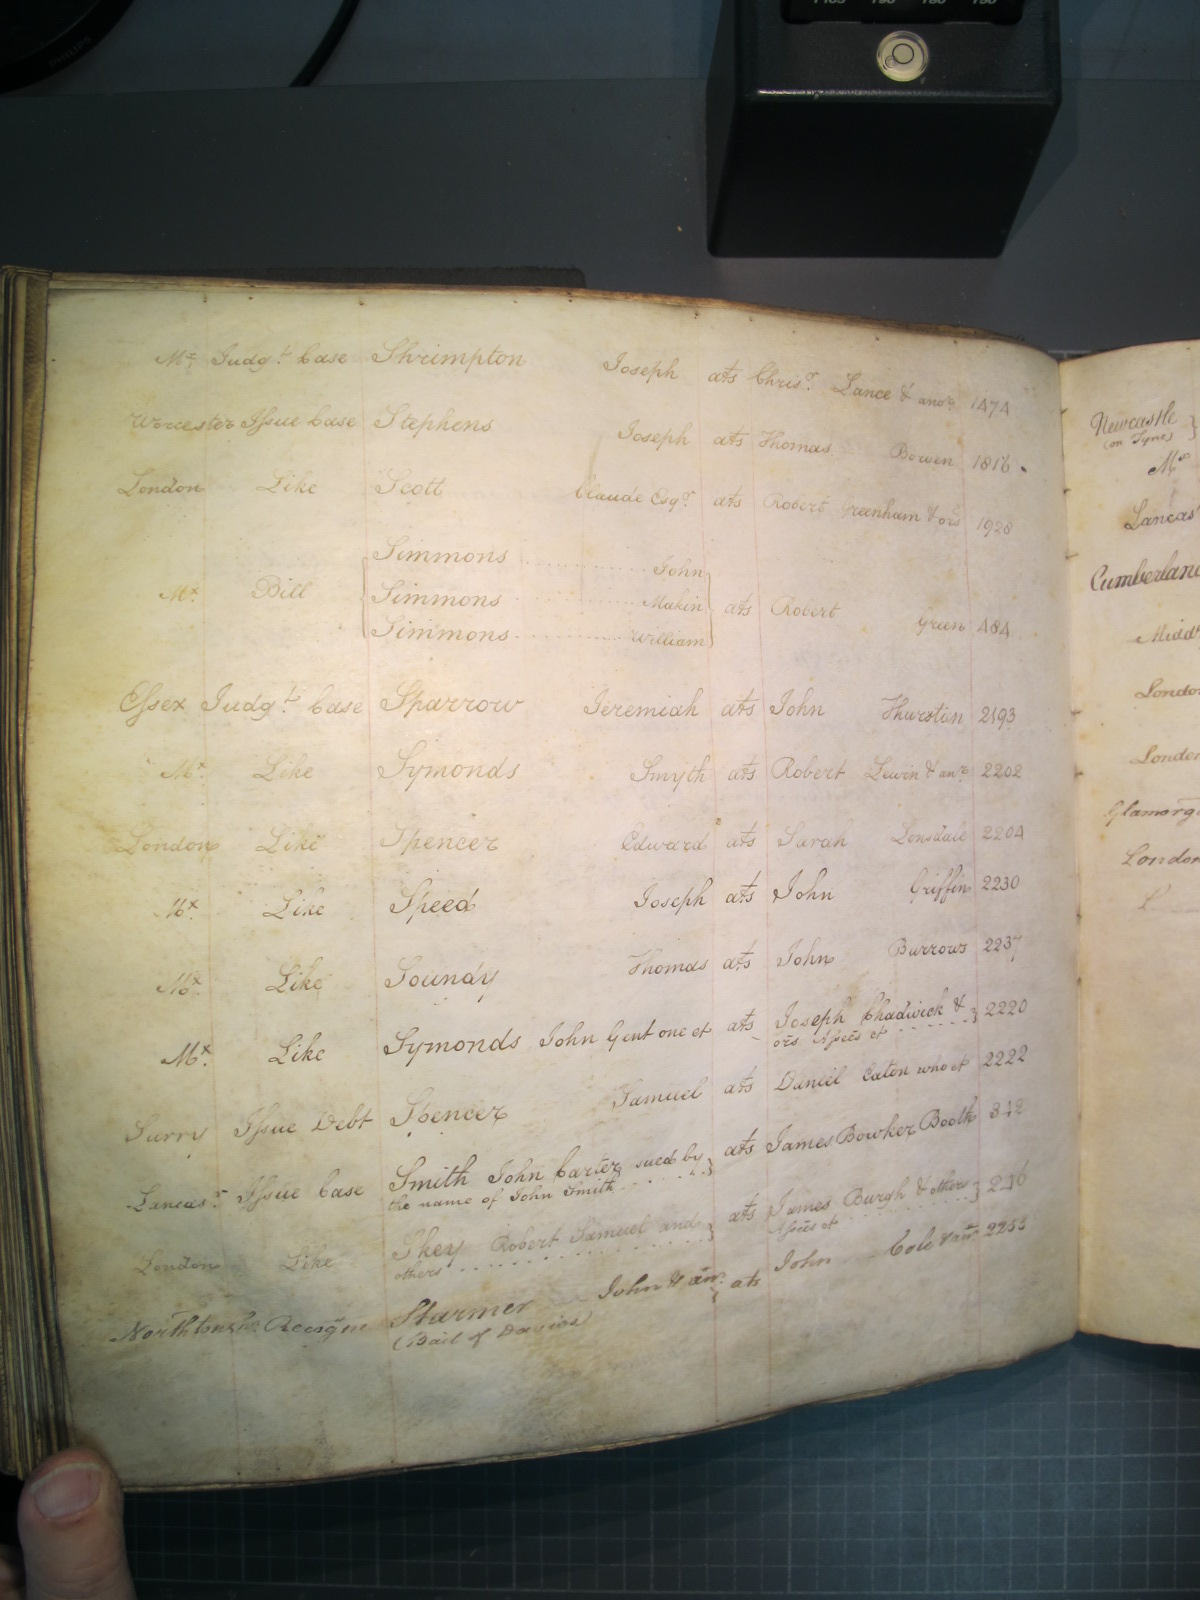 Mx Judgt Case Shrimpton Joseph ats Chrisr. Lance & anor 1474
Worcester Issue Case Stephens Joseph ats Thomas Bowen 1816
London Like Scott Claude Esqr. ats Robert Greenham & ors 1928
Simmons John
Mx. Bill Simmons Makin ats Robert Green 484
Simmons William
Essex Judgt. Case Sparrow Jeremiah ats John Thurston 2193
Mx. Like Symonds Smyth ats Robert Lewin & anr. 2202
London Like Spencer Edward ats Sarah Lonsdale 2204
Mx. Like Speed Joseph ats John Griffin 2230
Mx. Like Soundy Thomas ats John Burrows 2237
Mx. Like Symonds John Gent one et ats Joseph Chadwick & 2220
ors Assees et
Surry Issue Debt Spencer Samuel ats Daniel Eaton who et 2222
Lancasr. Issue Case Smith John Carter sued by ats James Bowker Booth 342
the name of John Smith
London Like Skey Robert Samuel and ats James Burgh & others
others Assees et
Northtonsh: Recogne Starmer John & anr. ats John Cole & anr 2255
(Bail of Davies)
Newcastle
(on Tyne)
Mx
Lancas
Cumberland
Middx
London
London
Glamorg
London
PHILIPS